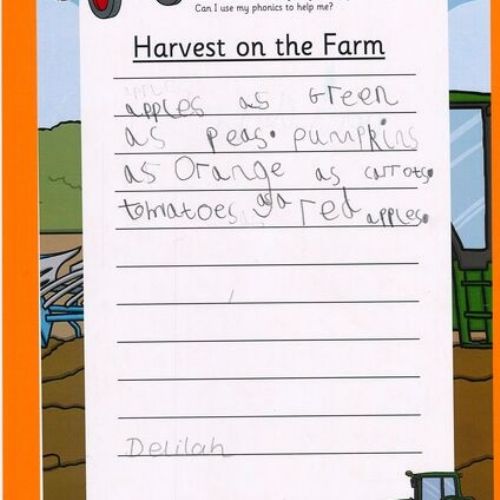 Can I use my phonics to help me?
Harvest on the Farm
apples as Green
as peas. pumpkins
as Orange as carrots.
tomatoes as a red apples.
Delilah